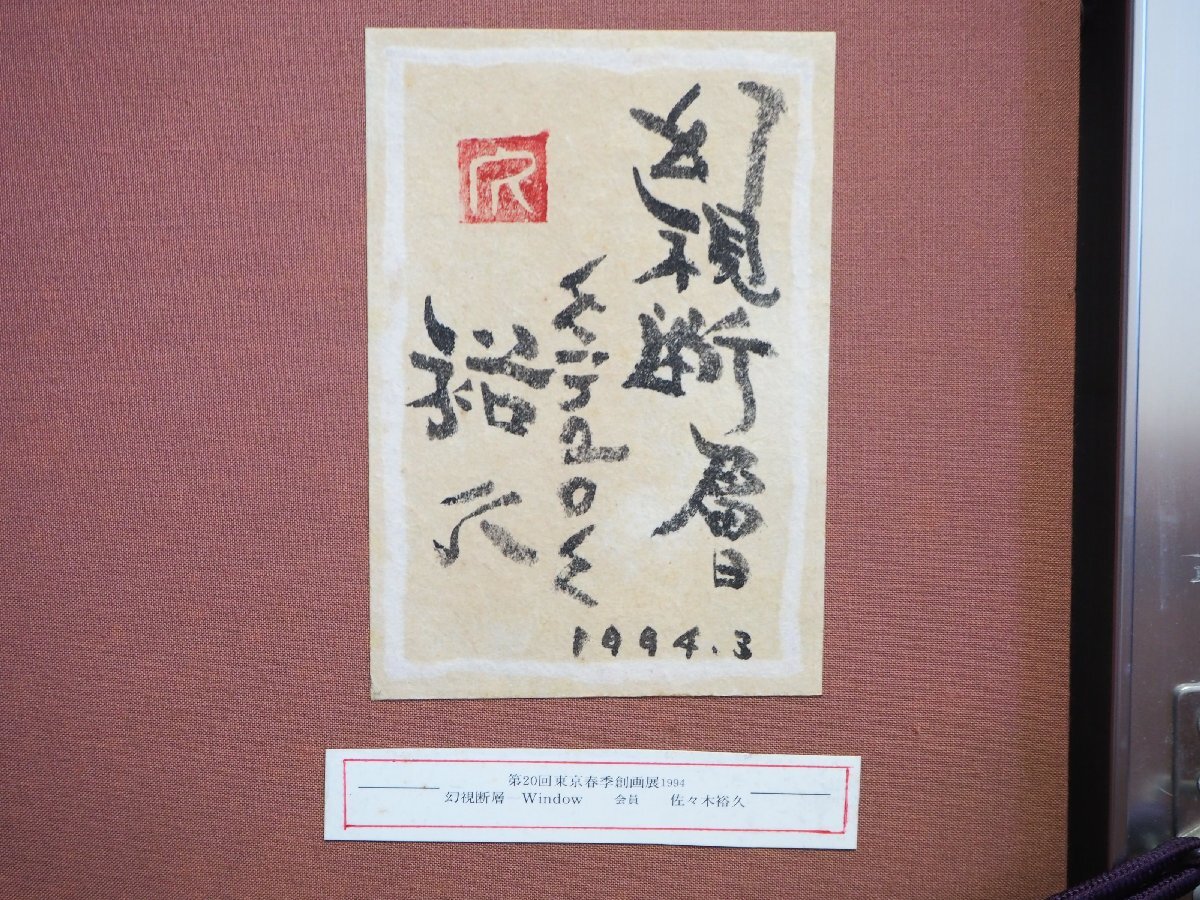 幻視断層
Window
裕久
1994.3
第20回東京春季創画展1994
幻視断層―Window 会員 佐々木裕久